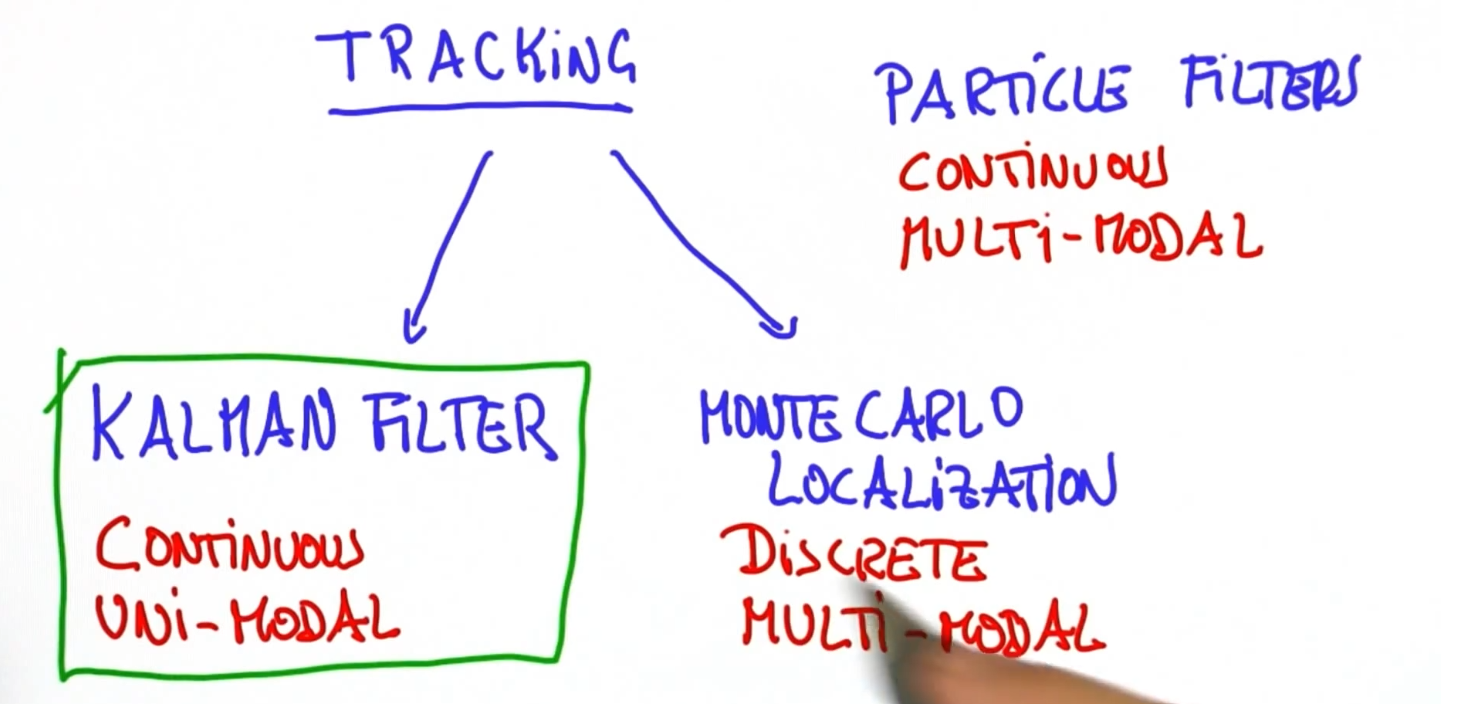 TRACKiNG
PARTiCLE FiLTERS
CONTiNUOUS
MULTi-MODAL
KALMAN FiLTER
CONTiNUOUS
UNi-MODAL
MONTE CARLO
LOCALiZATiON
DiSCRETE
MULTi-MODAL